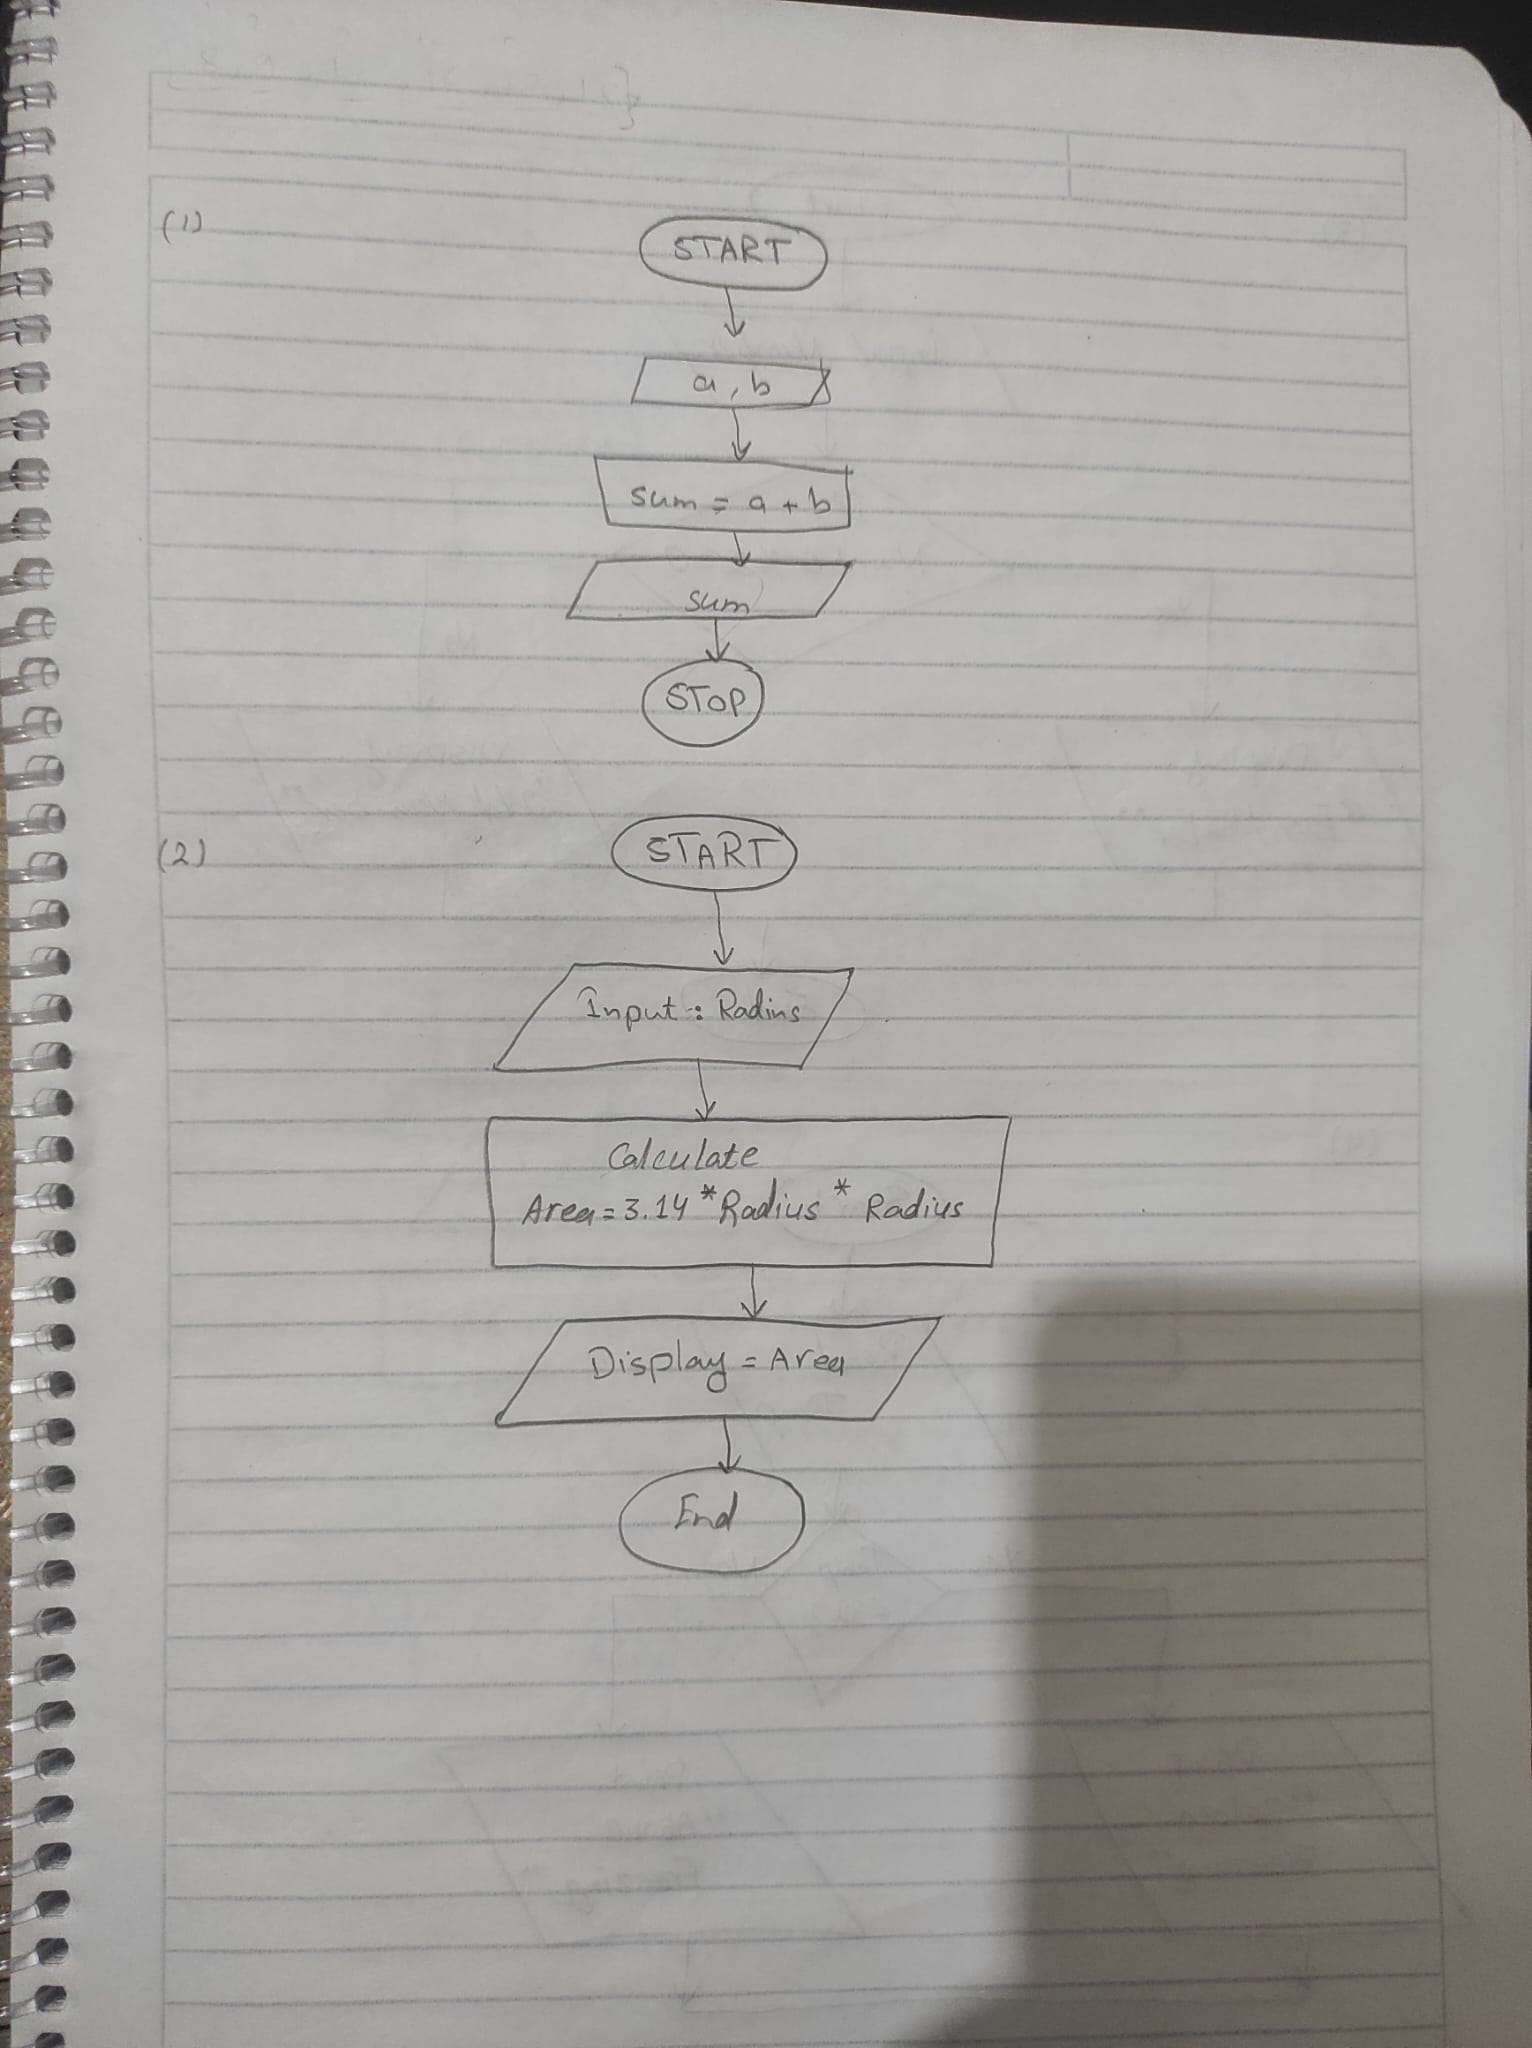 (1)
START
a, b
sum = a + b
sum
STOP
(2)
START
Input : Radius
Calculate
Area = 3.14 * Radius * Radius
Display = Area
End